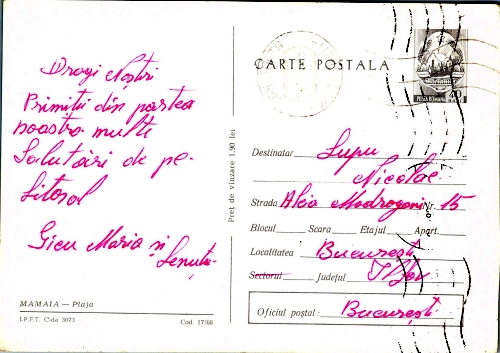 Dragi Noștri
Primiți din partea
noastră multe
Salutări de pe
Litoral
Gicu Maria și
Lenuța
MAMAIA — Plaja
I.P.F.T. C-da 3073
Cod. 17/68
Preț de vînzare 1,90 lei
CARTE POSTALA
40
Destinatar Lupu
Nicolae
Strada Alea Modrogani Nr. 15
Blocul Scara Etajul Apart.
Localitatea București
Sectorul Județul Ilfov
Oficiul poștal: București